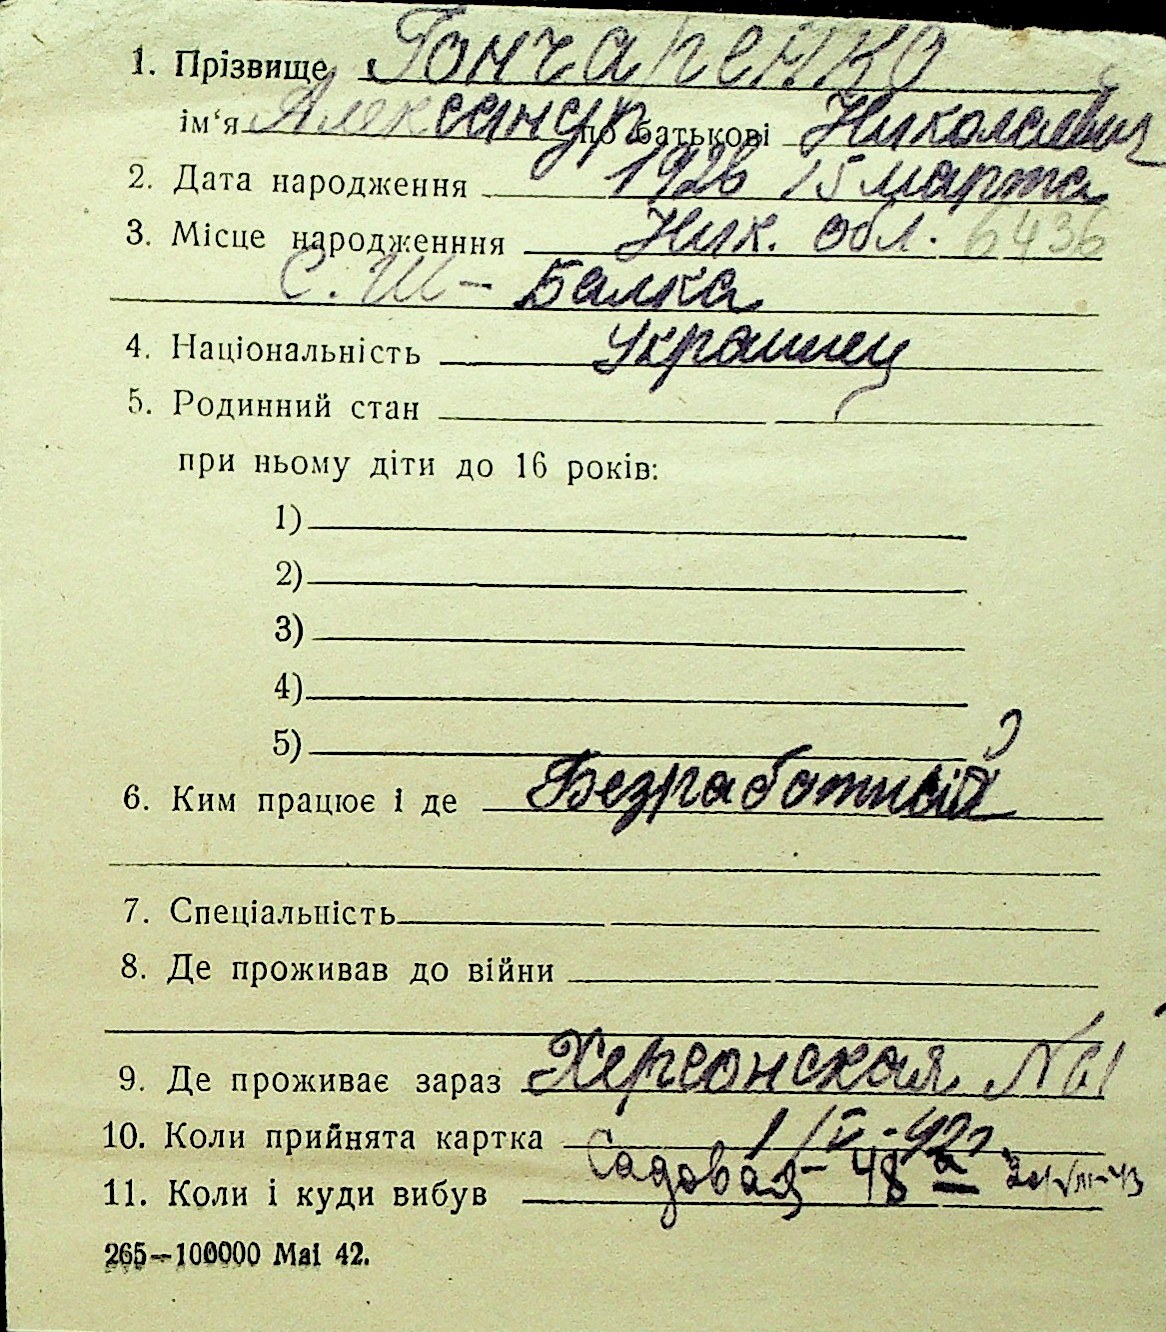 1. Прізвище Гончаренко
ім'я Александр по батькові Николаевич
2. Дата народження 1926 15 марта
3. Місце народженння Ник. обл. 6436
С. Ш-Балка
4. Національність Украинец
5. Родинний стан
при ньому діти до 16 років:
1)
2)
3)
4)
5)
6. Ким працює і де Безработный
7. Спеціальність
8. Де проживав до війни
9. Де проживає зараз Херсонская №
10. Коли прийнята картка
11. Коли і куди вибув Садовая - 48 а
265—100000 Mai 42.